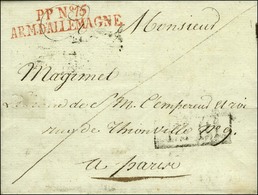 PP N° 15
ARM. D'ALLEMAGNE
Monsieur
Magimel
Libraire de S. M. l'empereur et roi
rue de Thionville N° 9
a paris